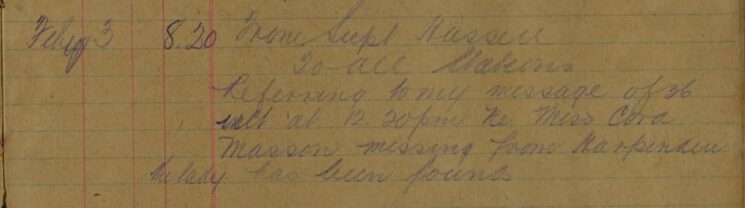 Feby 3 8.20 From Supt
To all Stations
Referring to my message of 36
inst at 12.20pm Re Miss Cora
Masson missing from Harpenden
the lady has been found